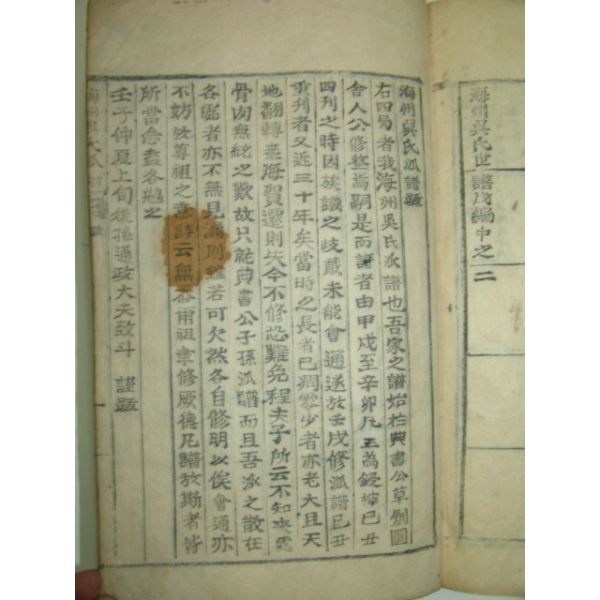 海州吳氏世譜戊編中之二
海州吳氏派譜跋
右四局者我海州吳氏派譜也吾家之譜始於典書公草創圖
舍人公修整焉嗣是而譜者由甲戌至辛卯凡五為鋟榟己丑
四刊之時因族議之歧貳未能會通遂於壬戌修派譜已丑
重刊者又近三十年矣當時之長者已凋零少者亦老大且天
地翻轉桒海貿遷則失今不修恐難免程夫子所云不知來處
骨肉無統之歎故只就典書公子孫派譜而且吾派之散在
各處者亦不無見漏則雖若可欠然各自修明以俟會通亦
不妨於尊祖之意詩云無忝爾祖聿修厥德凡譜於斯者皆
所當念盍各勉之
壬子仲夏上旬後孫通政大夫致斗 謹跋
海州吳氏派譜